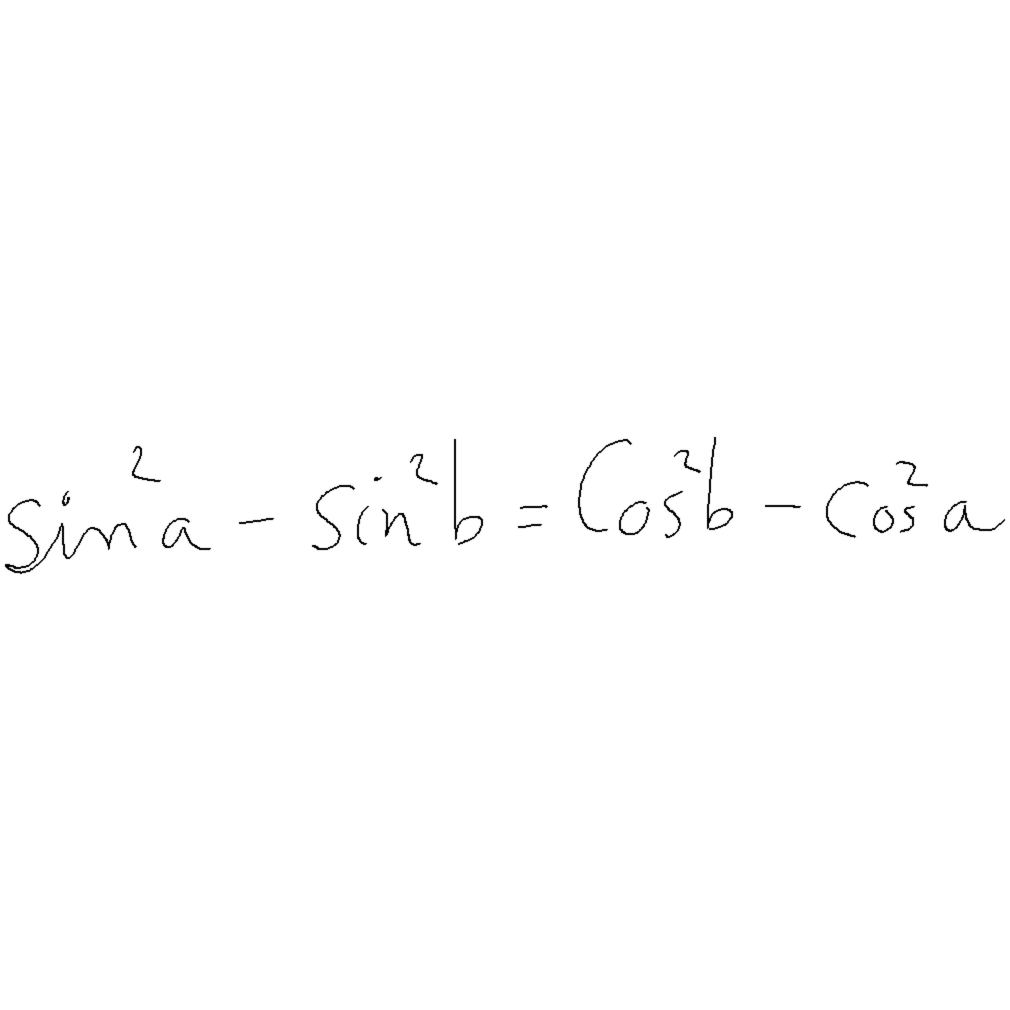 sin²a - sin²b = Cos²b - Cos²a